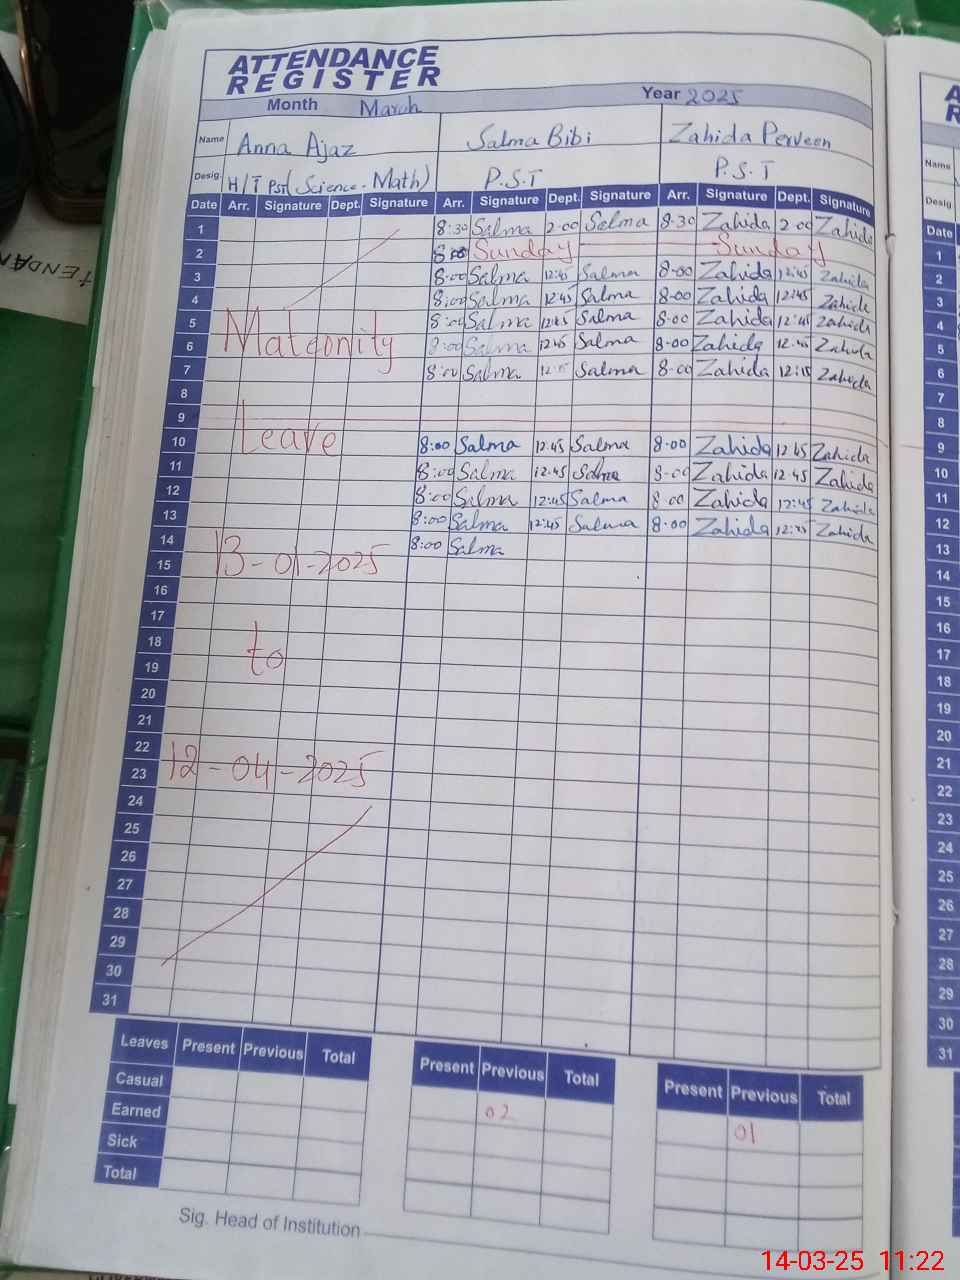 ATTENDANCE
REGISTER
Month March Year 2025
Name Anna Ajaz Salma Bibi Zahida Perveen
Desig. H/T PST (Science - Math) P.S.T P.S.T
Date Arr. Signature Dept. Signature Arr. Signature Dept. Signature Arr. Signature Dept. Signature
1 8:30 Salma 2-00 Salma 8-30 Zahida 2-00 Zahida
2 Sunday Sunday
3 8:00 Salma 12:45 Salma 8-00 Zahida 12:45 Zahida
4 8:00 Salma 12:45 Salma 8-00 Zahida 12:45 Zahida
5 8:00 Salma 12:45 Salma 8-00 Zahida 12:45 Zahida
Maternity
6 8:00 Salma 12:45 Salma 8-00 Zahida 12:45 Zahida
7 8:00 Salma Salma 8-00 Zahida 12:15 Zahida
8
9
Leave
10 8:00 Salma 12:45 Salma 8-00 Zahida 12:45 Zahida
11 8:00 Salma 12:45 Salma 8-00 Zahida 12:45 Zahida
12 8:00 Salma 12:45 Salma 8-00 Zahida 12:45 Zahida
13 8:00 Salma 12:45 Salma 8-00 Zahida Zahida
14 8:00 Salma
13-01-2025
15
16
17
18
to
19
20
21
22
12-04-2025
23
24
25
26
27
28
29
30
31
Leaves Present Previous Total Present Previous Total Present Previous Total
Casual 02 01
Earned
Sick
Total
Sig. Head of Institution
A
R
Name
Desig
Date
1
2
3
4
5
6
7
8
9
10
11
12
13
14
15
16
17
18
19
20
21
22
23
24
25
26
27
28
29
30
31
14-03-25 11:22